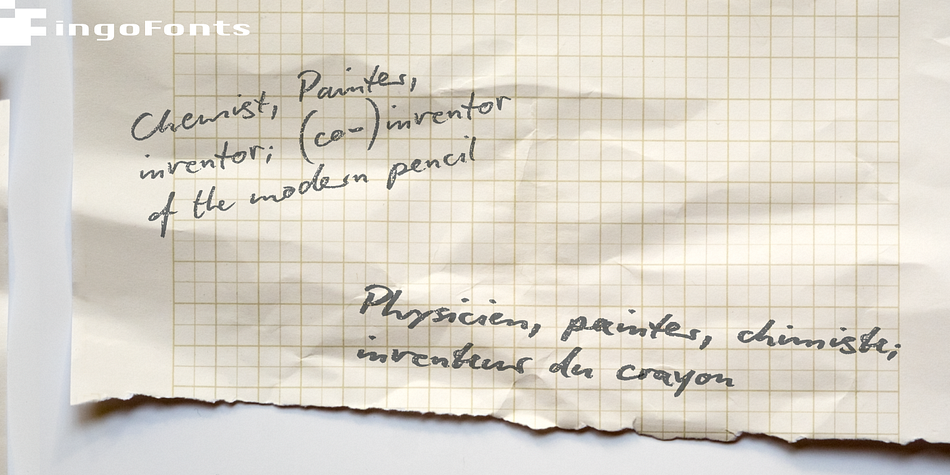 FingoFonts
Chemist, Painter,
inventor; (co-)inventor
of the modern pencil
Physicien, painter, chimiste;
inventeur du crayon